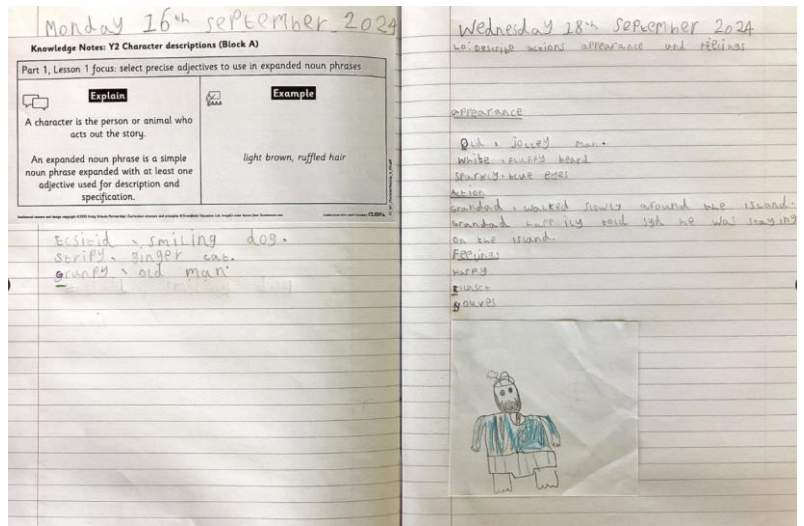 Monday 16th September 2024
Knowledge Notes: Y2 Character descriptions (Block A)
Part 1, Lesson 1 focus: select precise adjectives to use in expanded noun phrases
Explain
A character is the person or animal who
acts out the story.
An expanded noun phrase is a simple
noun phrase expanded with at least one
adjective used for description and
specification.
Example
light brown, ruffled hair
Ecsitid, smiling dog.
stripy, ginger cat.
Grunpy, old man.
Wednesday 18th September 2024
Lo: Describe actions appearance and feelings
appearance
Old, jolley man.
white, fluffy beard
Sparkly, blue eyes
Action
Grandad, walked slowly around the island.
Grandad happily told syd he was staying
On the island.
Feelings
Happy